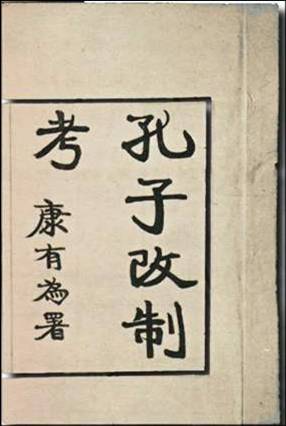 孔子改制
考
康有為署